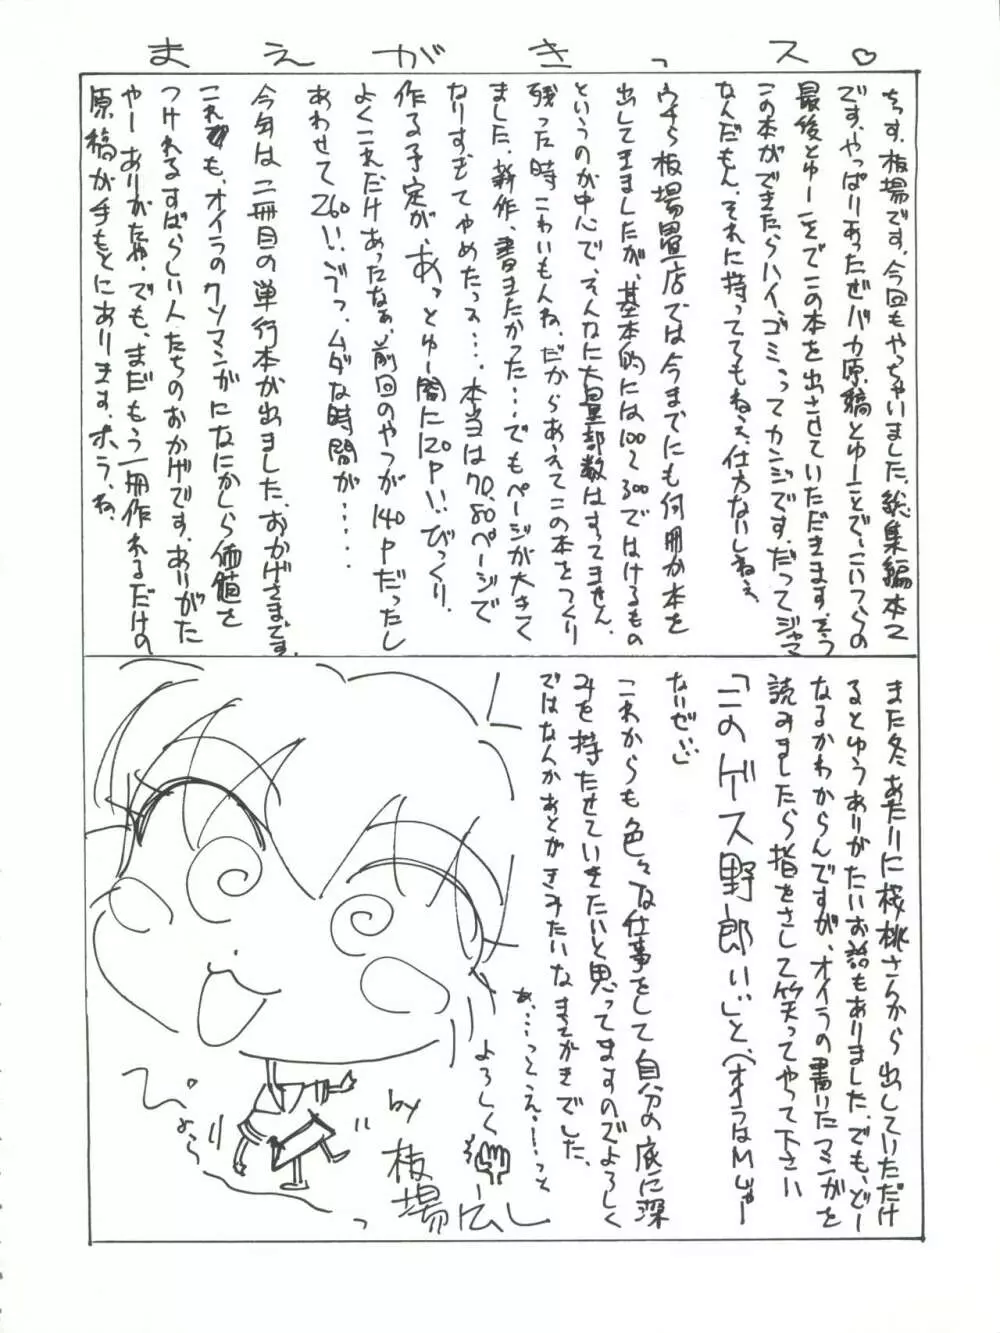 まえがきっス♡
ちす、板場です。今回もやっちゃいました、総集編本２
です。やっぱりあったぜバカ原稿とゆーことで、こいつらの
最後とゆーことでこの本を出させていただきます。そう
この本ができたらハイ、ゴミってカンジです。だってジャマ
なんだもん。それに持っててもねえ、仕方ないしねぇ
ウチら板場畳店では今までにも何冊か本を
出してきましたが、基本的には100〜300ではけるもの
というのが中心で、そんなに大量部数はすってません。
残った時こわいもんね。だからあえてこの本をつくり
ました。新作、書きたかった…でもページが大きく
なりすぎてやめたっス…。本当は70,80ページで
作る予定が、あっとゆー間に120P!!びっくり。
よくこれだけあったなぁ、前回のやつが140Pだったし
あわせて260!!、ゔっ、ムダな時間が……
今年は二冊目の単行本が出ました。おかげさまです。
これも、オイラのクソマンガになにかしら価値を
つけれるすばらしい人たちのおかげです。ありがた
やー ありがたや。でも、まだもう一冊作れるだけの
原稿が手もとにあります。ホラ、ね。
また冬あたりに桜桃さんから出していただけ
るとゆうありがたいお話もありました。でも、どー
なるかわからんですが、オイラの書いたマンガを
読みましたら指をさして笑ってやって下さい
「このゲス野郎!!」と、(オイラはMじゃー
ないぜ!!)
これからも色々な仕事をして自分の底に深
みを持たせていきたいと思ってますのでよろしく
ではなんかあとがきみたいなまえがきでした。
あ…っとえー…っと
よろしく
by 板場広し
ぴょろっ